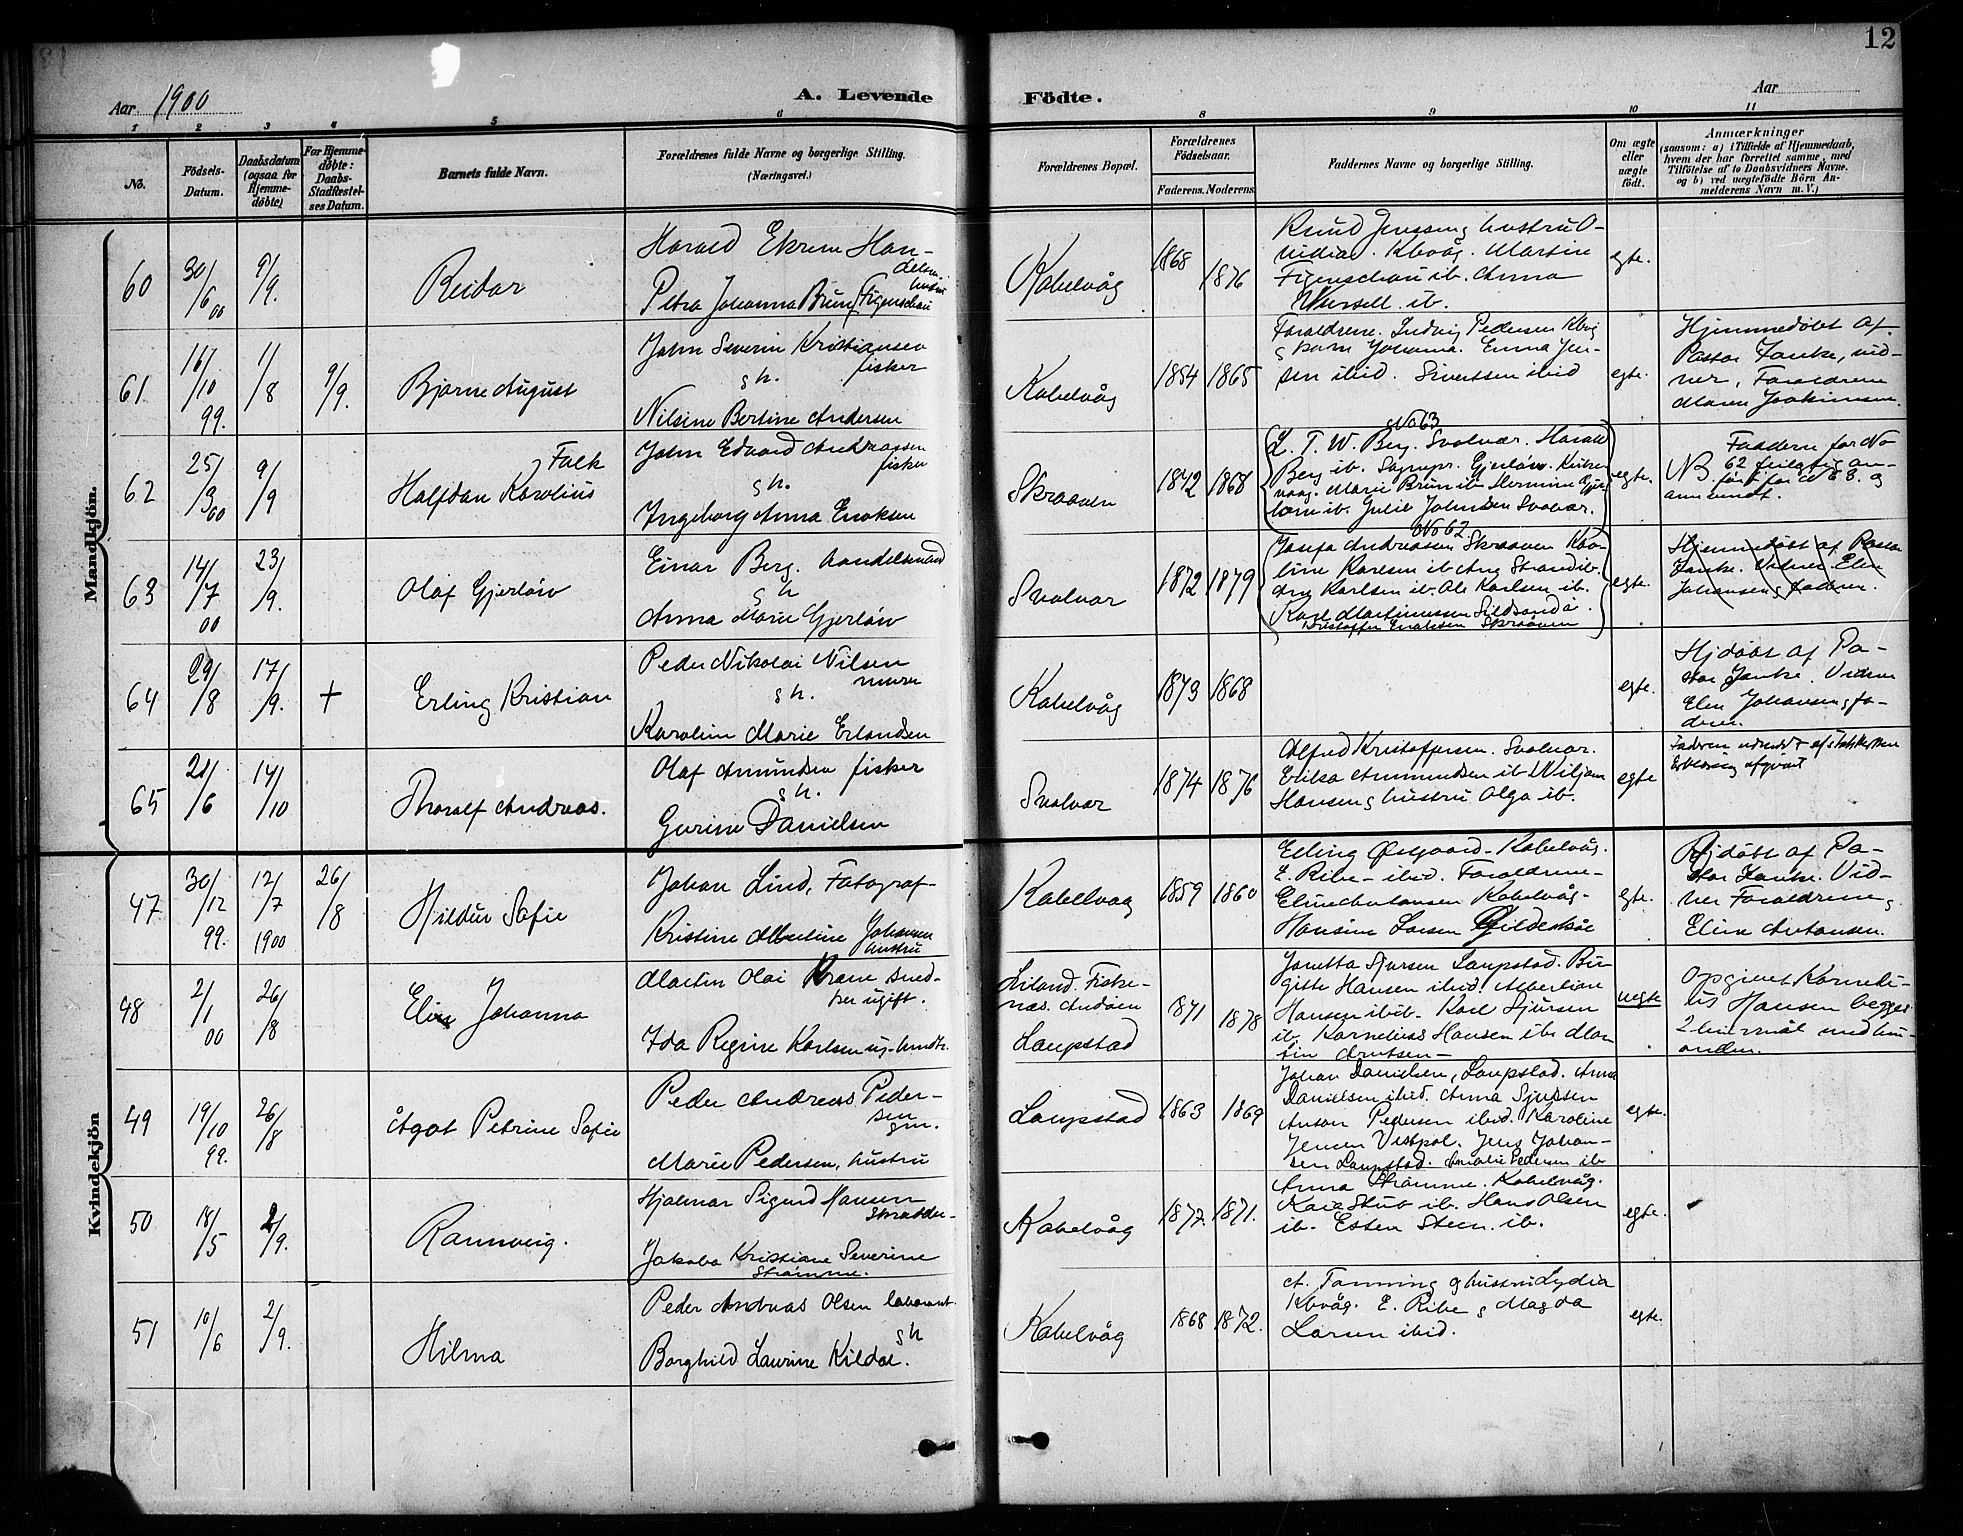 12
Aar 1900
A. Levende
Födte.
Aar
1 2 3 4 5 6 8 9 10 11
No.
Födsels-Datum.
Daabsdatum (ogsaa for Hjemmedöbte)
For Hjemmedöbte: Daabs-Stadfestelses Datum.
Barnets fulde Navn.
Forældrenes fulde Navne og borgerlige Stilling.
(Næringsvei.)
Forældrenes Bopæl.
Forældrenes Födselsaar.
Faderens. Moderens
Faddernes Navne og borgerlige Stilling.
Om ægte eller uægte födt.
Anmærkninger
(saasom: a) i Tilfælde af Hjemmedaab, hvem der har forrettet samme, med Tilföielse af to Daabsvidners Navne. og b) ved uægtefödte Börn Anmelderens Navn m. V.)
Mandkjön.
60 30/6 00 9/9. Reidar
Harald Ekrem Han-
delsm.
hustru
Petra Johanna Brun Figenschau
Kabelvåg 1868 1876
Knud Jenssen g hustru O-
vidia. Kbvåg. Martin
Figenschau ib. Anna
ib.
egte.
61 16/10 99. 1/8 9/9. Bjarne August
John Severin Kristiansen
fisker
g h.
Nilsine Bertine Andersen
Kabelvåg 1854 1865
Foraldrene. Ludvig Pedersen Kbvg
g barn Johanna. Emma Jen-
sen ibid. Sivertsen ibid
egte.
Hjemmedøbt af
Pastor Janke, vid-
ner, Foraldrene
Maren Joakimsen.
62 25/3 00 9/9 Falk
Halfdan Karolius
John Edvard Andreassen
fisker
g h.
Ingeborg Anna Enoksen
Skraaven 1842 1868
No 63
L. T. W. Berg. Svolvær. Harald
Berg ib. Sognepr. Gjerløw. Kirke-
vaag. Marie Brun ib. Hermine Gjer-
løw ib. Julie Johnsen Svolvær.
egte.
Faddere for No
NB 62 feilagtig an-
ført for No 63. og
omvendt.
63 14/7 00 23/9. Olaf Gjerløw
Einar Berg. handelsmand
g h
Anna Marie Gjerløw
Svolvær 1872 1879
No 62.
Josefa Andreassen Skraaven Karo-
line Karlsen ib. Aug Strand ib.
Karlsen ib. Ole Karlsen ib.
Karl Martinussen
Kristoffer Enoksen Skraaven
egte.
Hjemmedøbt af Pastor
Janke. Vidner. Elen
Johansen g faderen.
64 29/8 17/9. + Erling Kristian
Peder Nikolai Nilsen
murer
g h.
Karoline Marie Erlandsen
Kabelvåg 1873 1868
egte.
Hjdøbt af Pa-
stor Janke. Vidner
Elen Johansen g fa-
deren.
65 21/6 14/10 Thoralf Andreas.
Olaf Amundsen fisker
g h.
Gurine Danielsen
Svolvær 1874 1876
Alfred Kristoffersen. Svolvær.
Erika Ammundsen ib Wiljam
Hansen g hustru Olga ib.
egte
Faderen udmeldt af statskirken
Erklæring afgivet
Kvindekjön
47 30/12 99. 12/7 1900 26/8 Hildur Sofie
Johan Lind, Fotograf-
Kristine Albertine Johansen
hustru
Kabelvaag 1859 1860
Erling Østgaard - Kabelvåg.
E. Ribe - ibid. Foraldrene-
Eline Antonsen Kabelvåg-
Hansine Larsen Gildeskål
egte.
Hjdøbt af Pa-
stor Janke. Vid-
ner Foraldrene g
Eline Antonsen.
48 2/1 00 26/8 Elise Johanna
Martin Olai Krane sned-
ker ugift.
Ida Regine Karlsen ug. hundtv.
Liland. Fiske-
næs. Andöien
Laupstad
1871 1878
Janetta Sjursen Laupstad. Bir-
gitte Hansen ibid. Albertine
Hansen ibid. Karl Sjursen
ib. Kornelius Hansen ib. Mar-
tin Arntsen-
uegte
Opgivet Korneli-
us Hansen begges
2 leiermål med hin-
anden.
49 19/10 99. 26/8 Ågot Petrine Sofie
Peder Andreas Peder-
sen
gm.
Marie Pedersen, hustru
Laupstad 1863 1869
Johan Danielsen, Laupstad. Anna
Danielsen ibid. Anna Sjursen
Anton Pedersen ibid. Karoline
Jensen Vestpol. Jens Johan-
sen Laupstad. Amalie Pedersen ib
egte.
50 18/5 2/9. Rannveig.
Hjalmar Sigurd Hansen
Skrædder-
Jakoba Kristiane Severine
Strømme.
Kabelvåg 1877. 1871.
Anna Strømme. Kabelvåg.
Karl Stub ib. Hans Olsen
ib. Esten Steen. ib.
egte.
51 10/6 2/9. Hilma
Peder Andreas Olsen laborant.
g h
Borghild Laurine Kildal.
Kabelvåg 1868 1872.
A. Tanning g hustru Lydia
Kbvåg. E. Ribe g Magda
Larsen ibid.
egte.